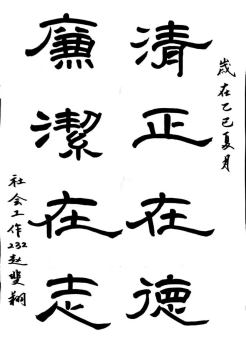 歲在乙巳夏月
清正在德
廉潔在志
社会工作232赵斐翔